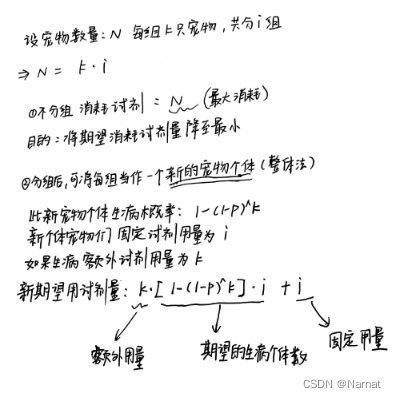 设宠物数量: N 每组k只宠物, 共分i组
⇒ N = k·i
①不分组 消耗试剂 = N (最大消耗)
目的: 将期望消耗试剂量降至最小
②分组后, 可将每组当作一个新的宠物个体 (整体法)
此新宠物个体生病概率: 1-(1-p)^k
新个体宠物们固定试剂用量为 i
如果生病额外试剂用量为 k
新期望用试剂量: k·[1-(1-p)^k]·i + i
额外用量 期望的生病个体数 固定用量
CSDN @Narnat